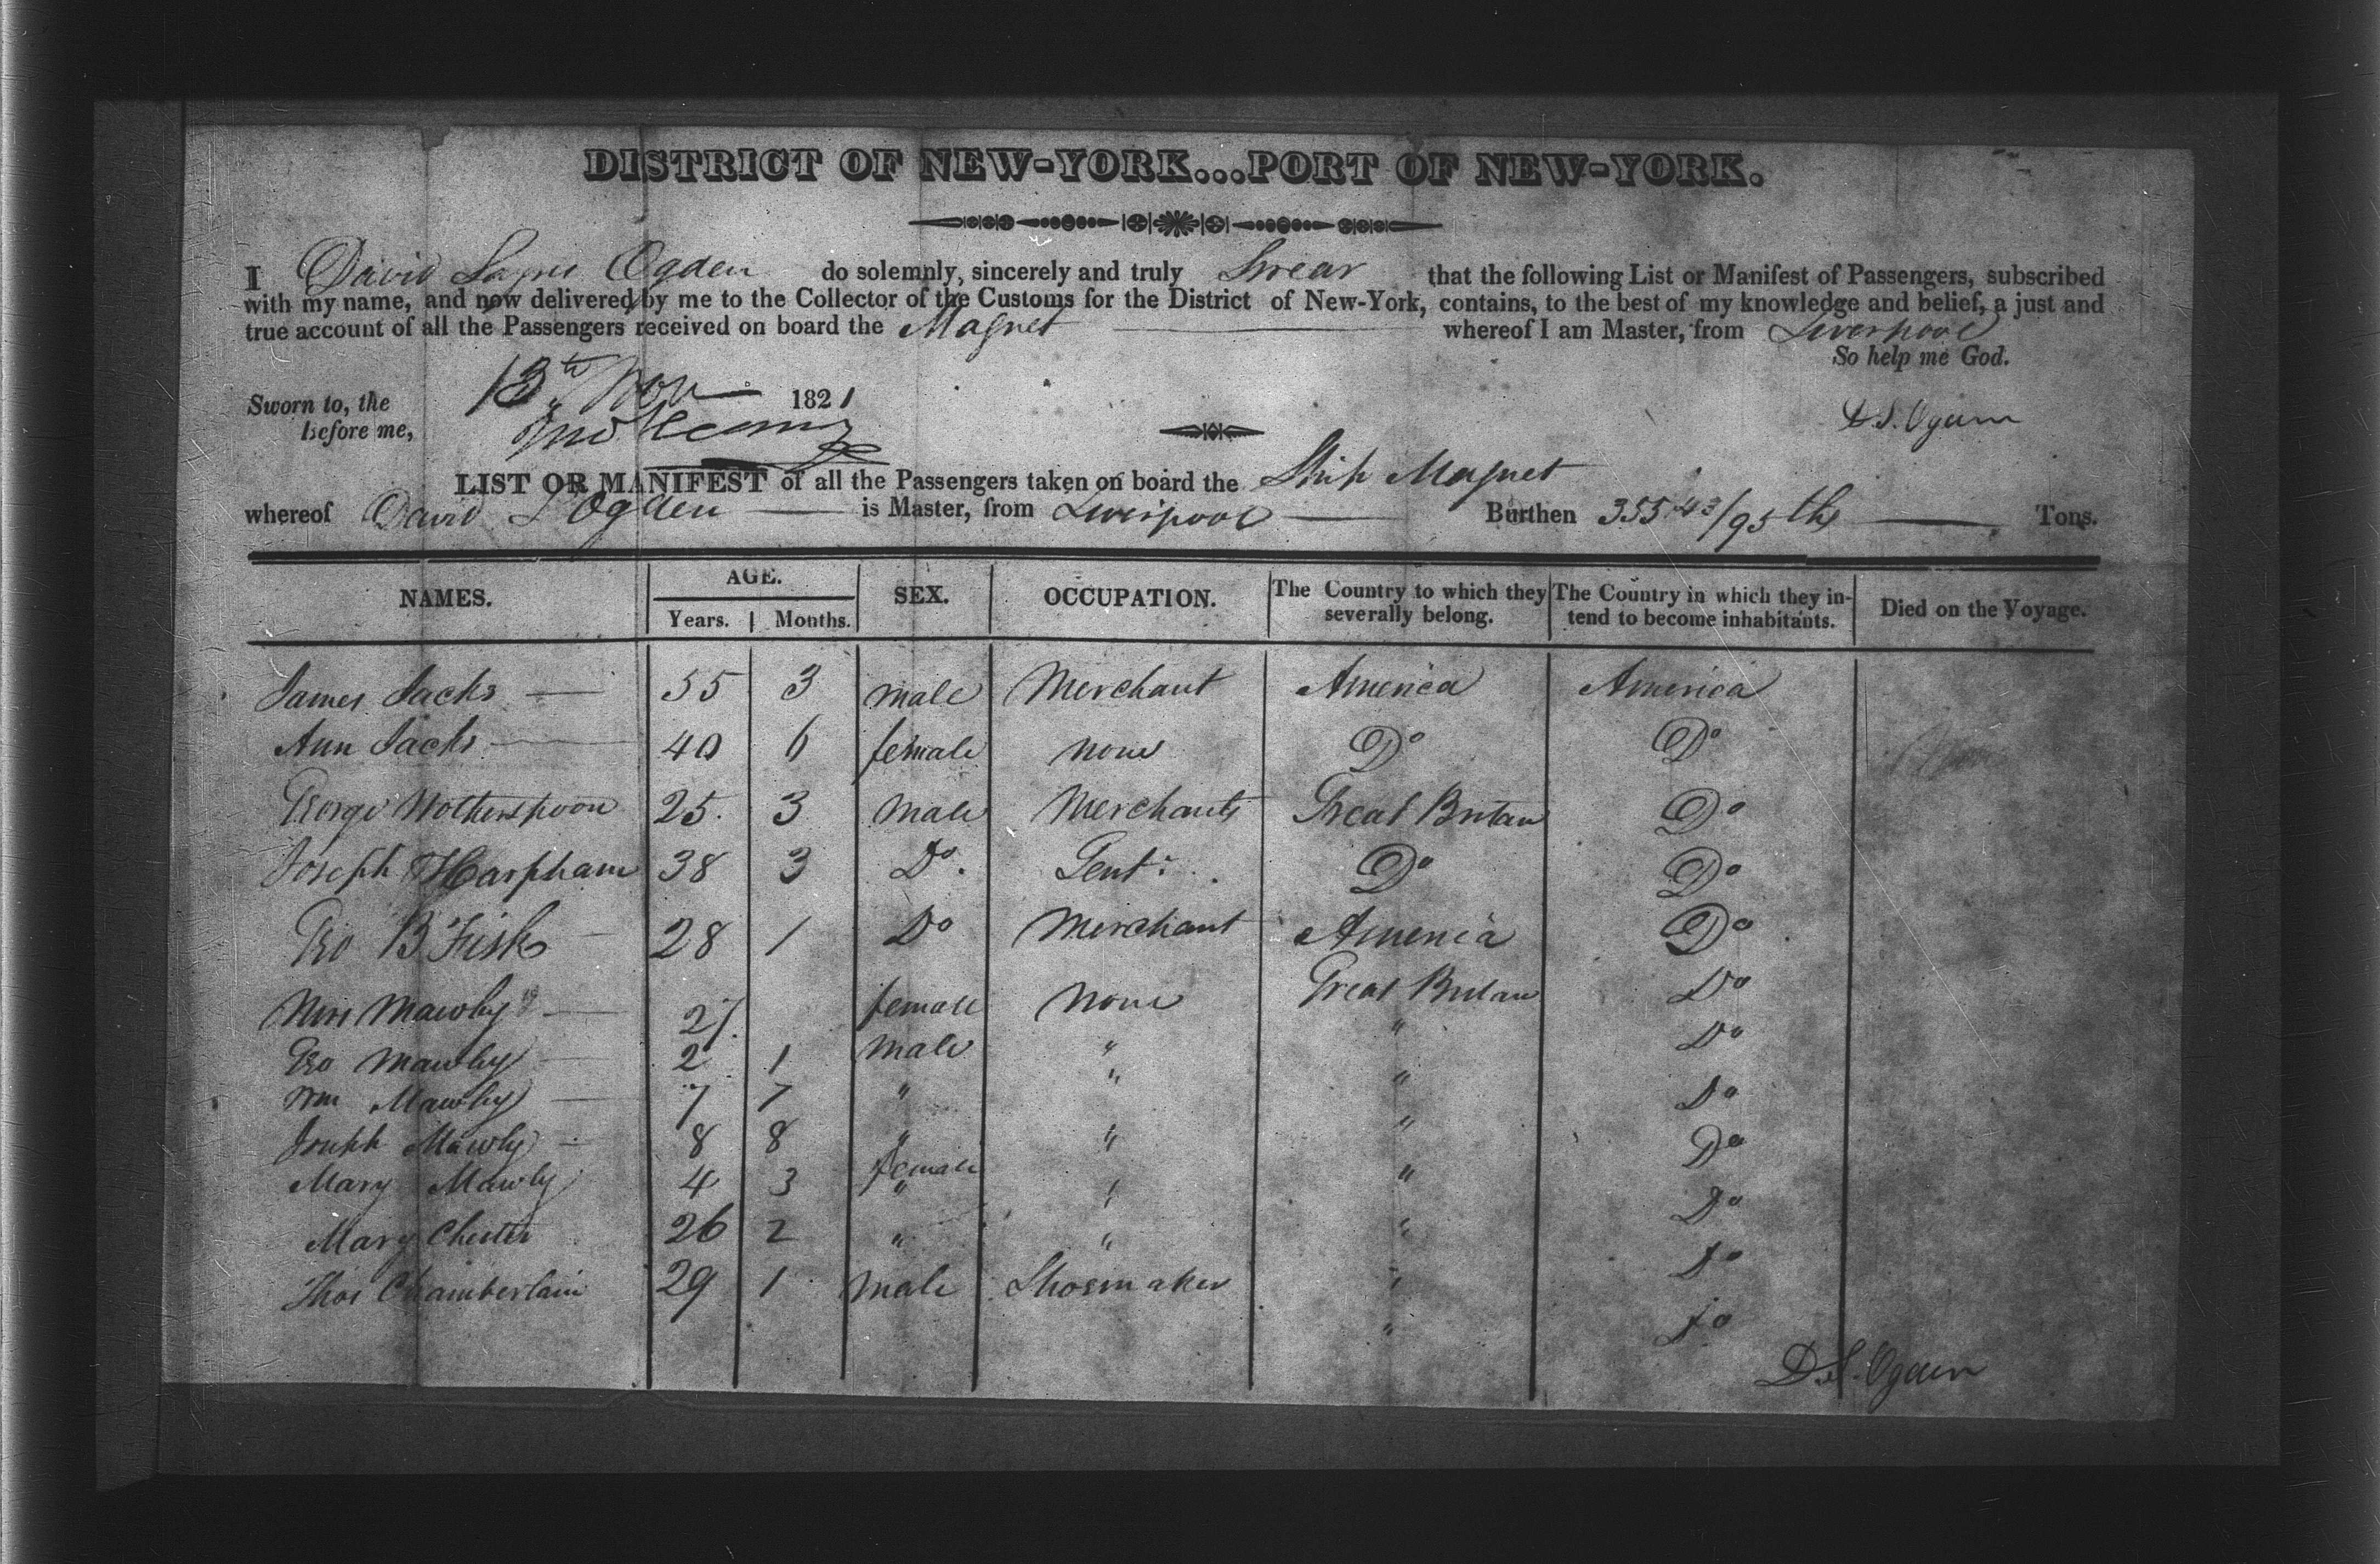 DISTRICT OF NEW-YORK...PORT OF NEW-YORK.
I David Ogden do solemnly, sincerely and truly Swear that the following List or Manifest of Passengers, subscribed
with my name, and now delivered by me to the Collector of the Customs for the District of New-York, contains, to the best of my knowledge and belief, a just and
true account of all the Passengers received on board the Magnet whereof I am Master, from Liverpool
So help me God.
Sworn to, the 13th Nov 1821
before me,
D. S. Ogden
LIST OR MANIFEST of all the Passengers taken on board the Ship Magnet
whereof David S Ogden is Master, from Liverpool Burthen 355 43/95ths Tons.
NAMES. AGE. SEX. OCCUPATION. The Country to which they severally belong. The Country in which they intend to become inhabitants. Died on the Voyage.
Years. Months.
James Jacks 55 3 male Merchant America America
Ann Jacks 40 6 female none Do Do
George Wotherspoon 25. 3 male Merchants Great Britain Do
Joseph Harpham 38 3 Do. Gent: Do Do
Geo B Fisk 28 1 Do Merchant America Do
Mrs Mawby 27. female none Great Britain Do
Geo Mawby 2 1 male " " Do
Wm Mawby 7 7 " " " Do
Joseph Mawby 8 8 " " " Do
Mary Mawby 4 3 female " " Do
Mary Chester 26 2 " " " Do
Thos Chamberlain 29 1 male Shoemaker " Do
D. S. Ogden